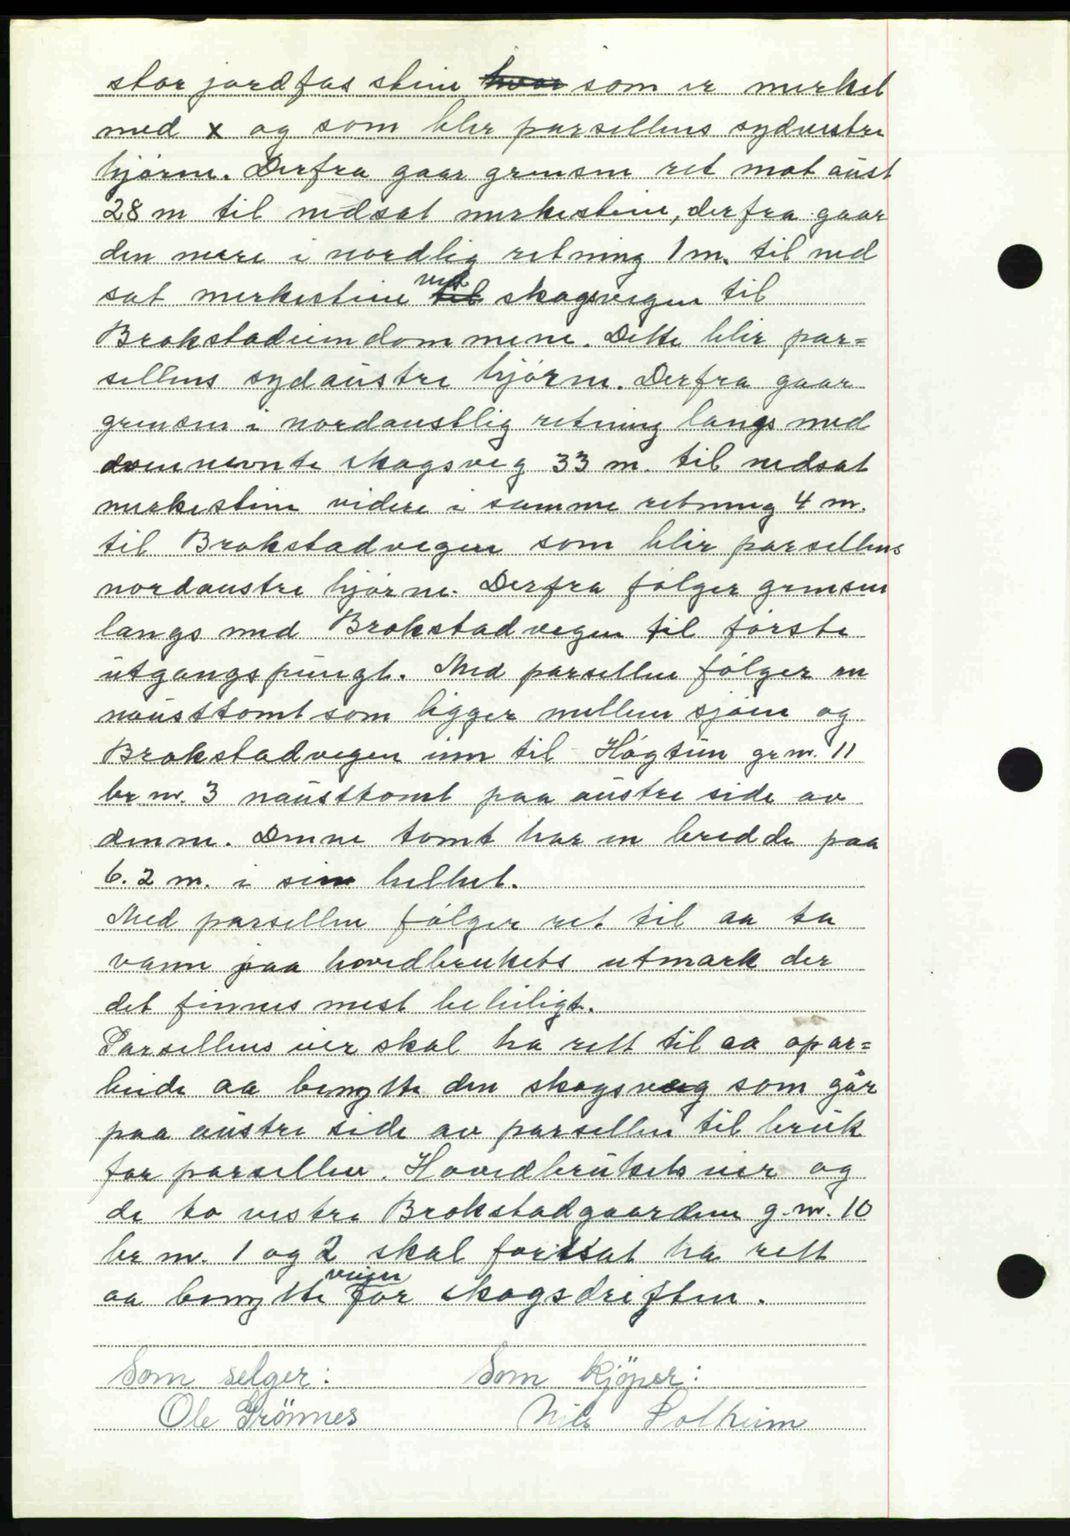 stor jordfas stein hvor som er merket
med x og som blir parsellens sydvestre
hjørne. Derfra gaar grensen ret mot aust
28 m til nedsat merkestein, derfra gaar
den mere i nordlig retning 1 m. til ned
sat merkestein til ved skogsvegen til
Brokstadeiendommene. Dette blir par=
sellens sydaustre hjørne. Derfra gaar
grensen i nordaustlig retning langs med
ovennevnte skogsveg 33 m. til nedsat
merkestein videre i samme retning 4 m.
til Brokstadvegen som blir parsellens
nordaustre hjørne. Derfra følger grensen
langs med Brokstadvegen til første
utgangspungt. Med parsellen følger en
nausttomt som ligger mellem sjøen og
Brokstadvegen inn til Høgtun gr. nr. 11
br nr. 3 nausttomt paa austre side av
denne. Denne tomt har en bredde paa
6.2 m. i sin helhet.
Med parsellen følger ret til aa ta
vann paa hovedbrukets utmark der
det finnes mest beleiligt.
Parsellens eier skal ha rett til aa opar=
beide aa benytte den skogsveg som går
paa austre side av parsellen til bruk
for parsellen. Hovedbrukets eier og
de to vestre Brokstadgaardene g. nr. 10
br nr. 1 og 2 skal fortsat ha rett
aa benytte veien for skogsdriften.
Som selger: Som kjöper:
Ole Grönnes Nils Solheim